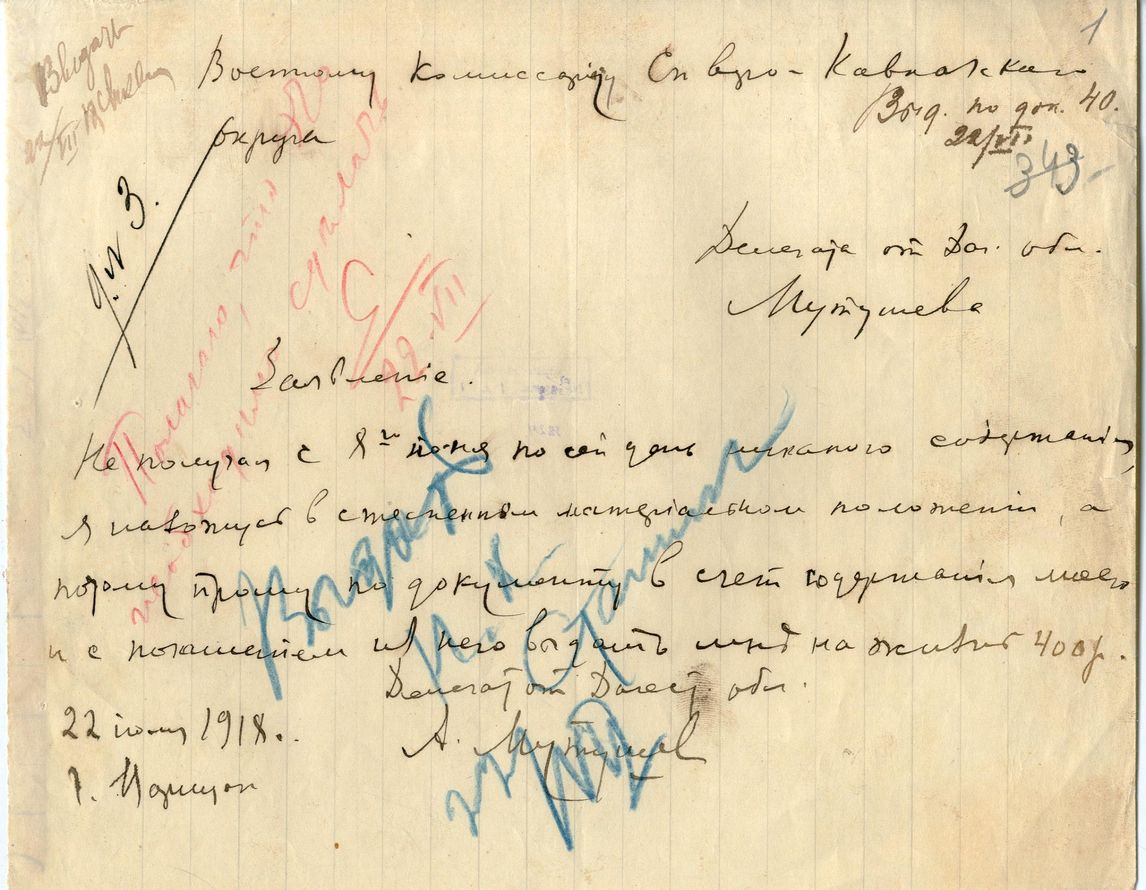 1
Выдать
22/VII
Военному Комиссару Северо-Кавказского
округа
Выд. по док. 40.
22/VII
343
д. N 3.
Полагаю, что
необходимо сделать
22.VII
Делегата от Даг. обл.
Мутушева
Заявленіе.
Не получая с 1го іюня по сей день никакого содержанія,
я нахожусь в стесненном матеріальном положеніи, а
потому прошу по документу в счет содержанія моего
и с погашеніем из него выдать мнѣ на жизнь 400р.
Делегат от Дагест. обл.
А. Мутушев
22 іюля 1918.
г. Царицын
Выдать
22/VII